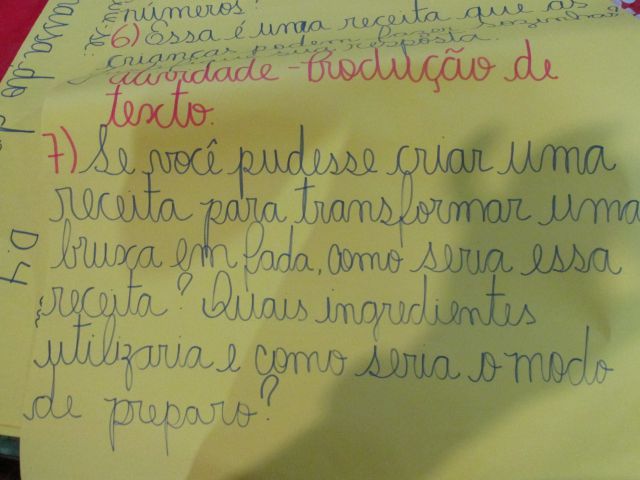 números?
6) Essa é uma receita que as
crianças podem fazer sozinhas?
sua resposta.
atividade - Produção de
texto.
7) Se você pudesse criar uma
receita para transformar uma
bruxa em fada, como seria essa
receita? Quais ingredientes
utilizaria e como seria o modo
de preparo?